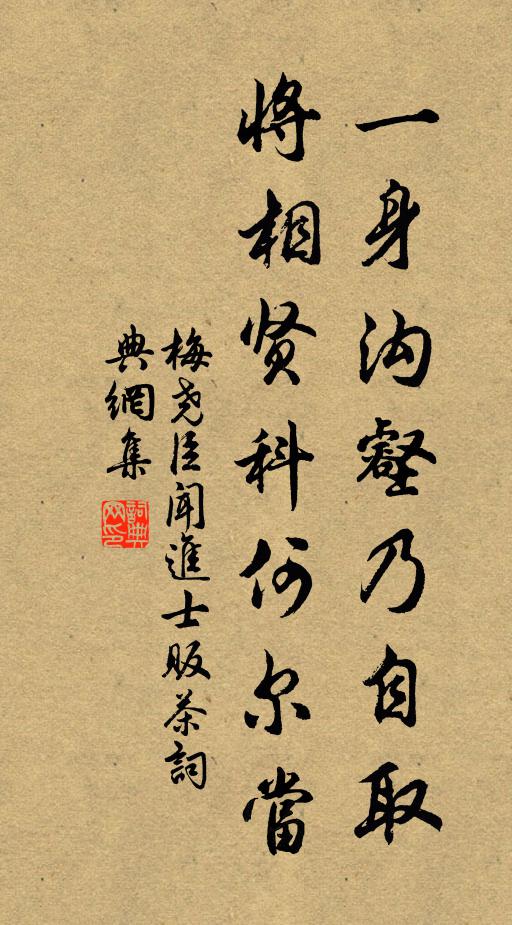 一身沟壑乃自取
将相贤科何尔當
梅尧臣闻進士贩茶詞
典網集
詞典
网印